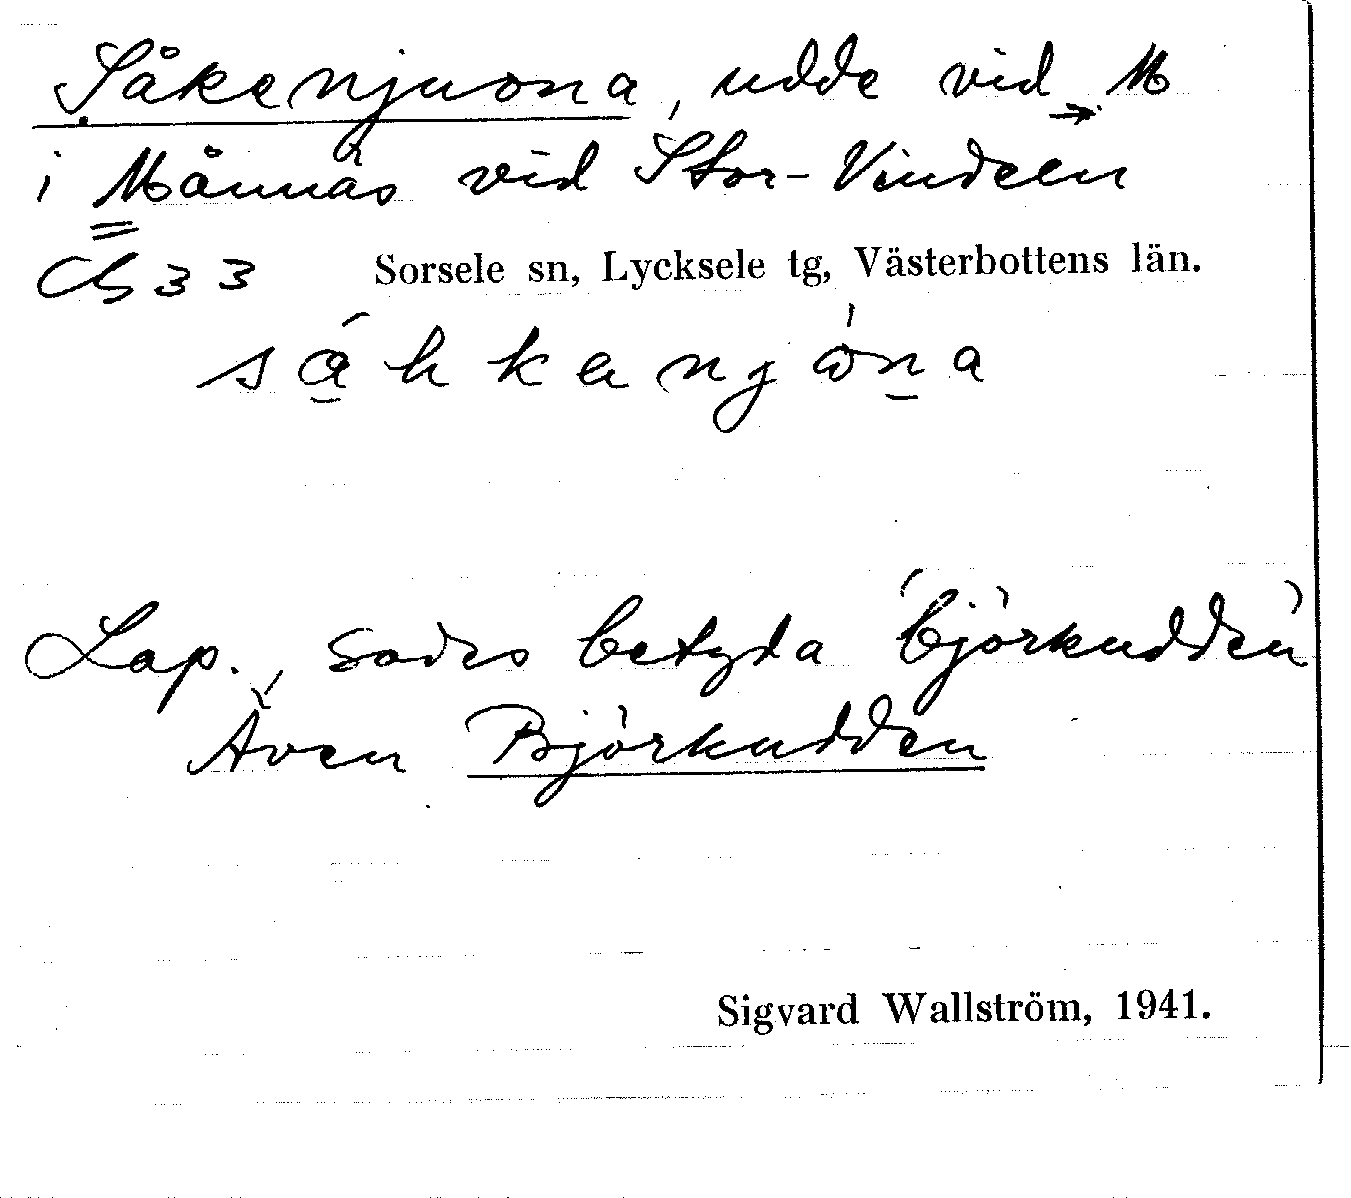 Såkenjuona, udde vid M
i Månnäs vid Stor-Vindeln
Cb 33 Sorsele sn, Lycksele tg, Västerbottens län.
Lap., sades betyda 'björkudden'
Även Björkudden
Sigvard Wallström, 1941.